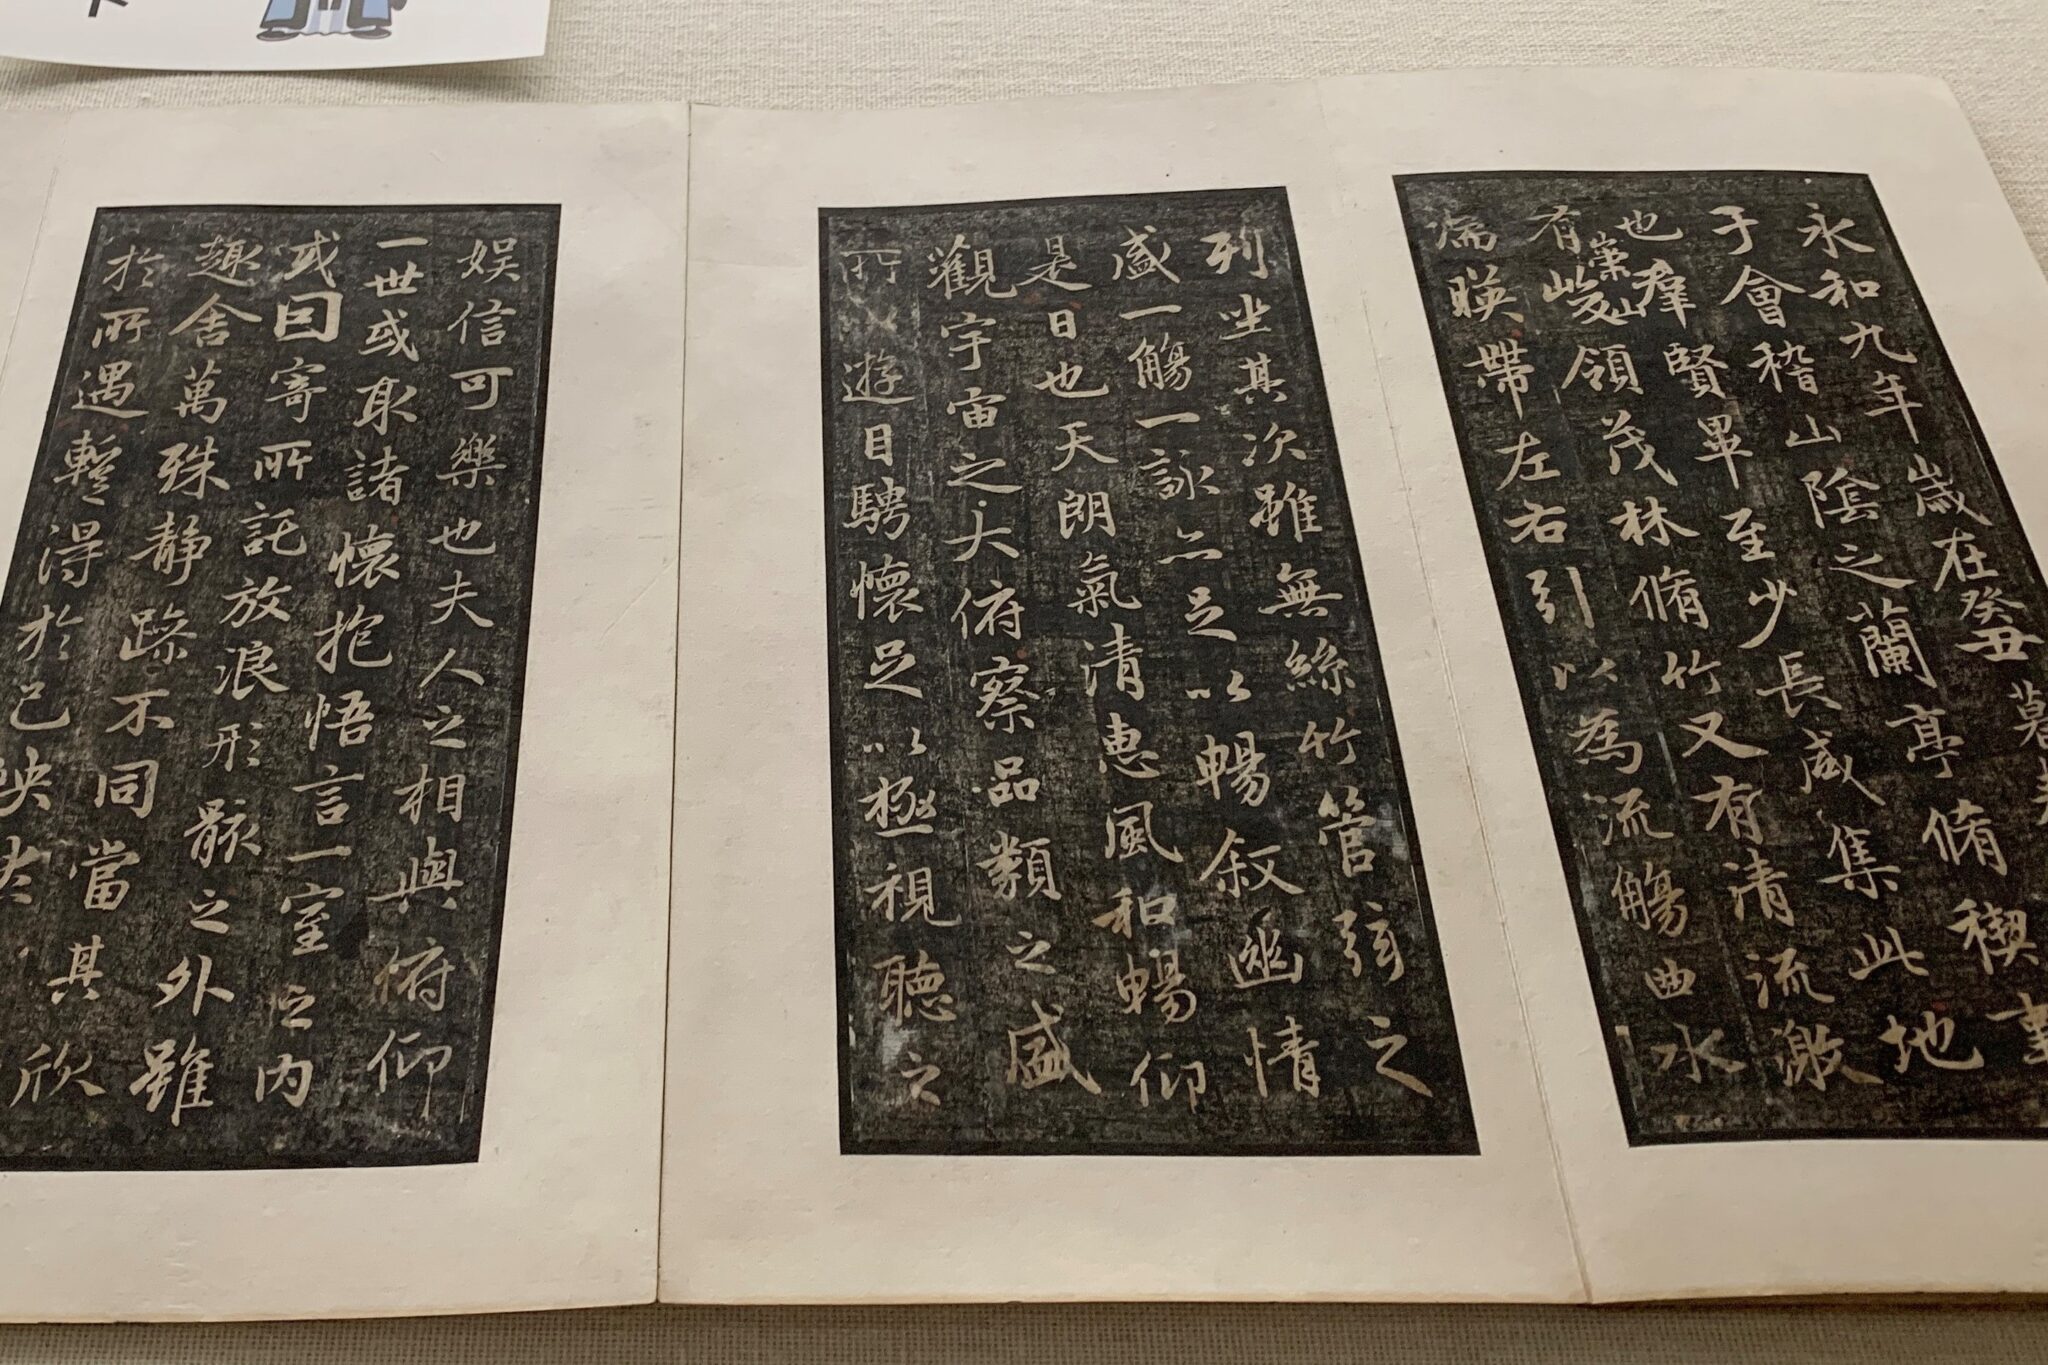 永和九年歲在癸丑暮春
于會稽山陰之蘭亭脩禊事
也羣賢畢至少長咸集此地
有崇山峻領茂林脩竹又有清流激
湍暎帶左右引以為流觴曲水
列坐其次雖無絲竹管弦之
盛一觴一詠亦足以暢敘幽情
是日也天朗氣清惠風和暢仰
觀宇宙之大俯察品類之盛
所以遊目騁懷足以極視聽之
娛信可樂也夫人之相與俯仰
一世或取諸懷抱悟言一室之內
或因寄所託放浪形骸之外雖
趣舍萬殊靜躁不同當其欣
於所遇暫得於己怏然